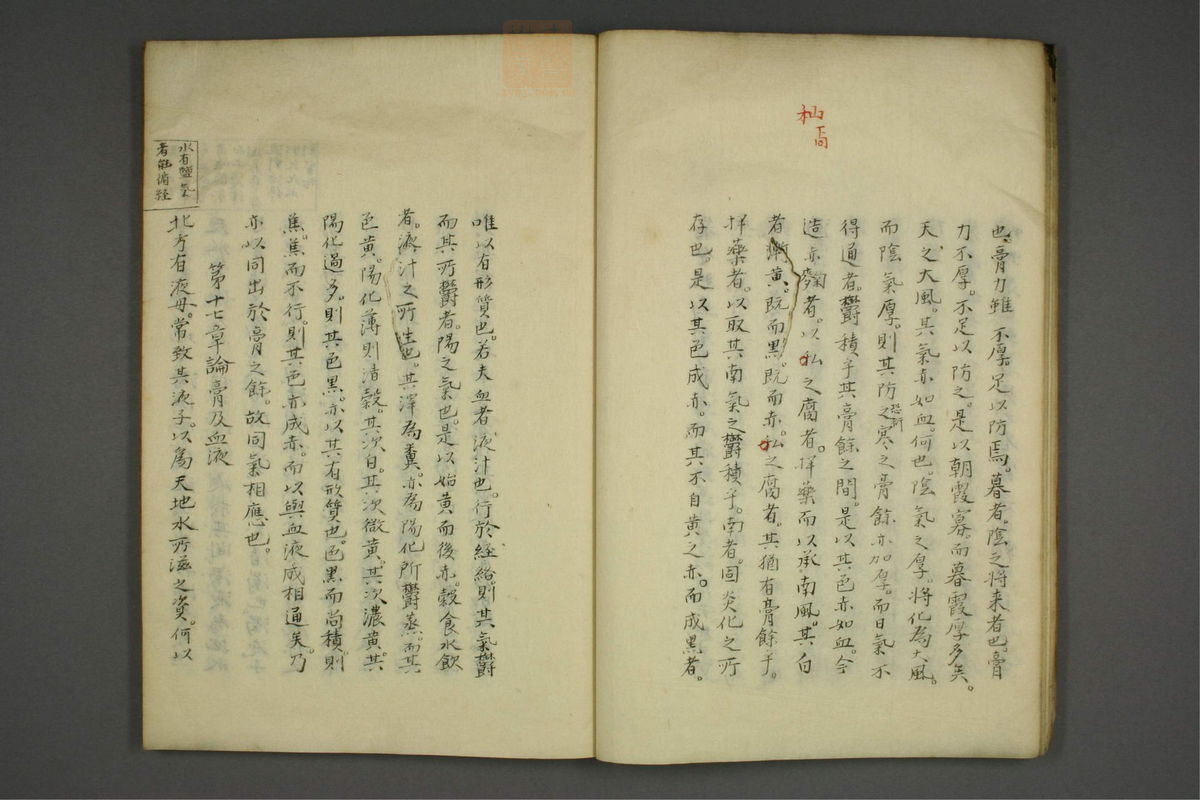 秈
高
也。膏力雖不厚。足以防焉。暮者。陰之將来者也。膏
力不厚。不足以防之。是以朝霞寡。而暮霞厚多矣。
天之大風。其氣赤如血。何也。陰氣之厚。將化為大風。
而陰氣厚。則其防之寒之膏餘亦加厚。而日氣不
恐衍
得通者。欝積乎其膏餘之間。是以其色赤如血。今
造赤麹者。以秈之腐者。拌藥而以承南風。其白
者漸黄。既而黒。既而赤。秈之腐者。其猶有膏餘乎。
拌藥者。以取其南氣之欝積乎。南者。同炎化之所
存也。是以其色成赤。而其不自黄之赤。而成黒者。
唯以有形質也。若夫血者液汁也。行於経絡。則其氣欝
而其所欝者。陽之氣也。是以始黄而後赤。穀食水飲
者。液汁之所生也。其滓為糞。亦為陽化所欝蒸。而其
色黄。陽化薄則清穀。其次白。其次微黄。其次濃黄。其
陽化過多。則其色黒。亦以其有形質也。色黒而尚積。則
焦焦而不行。則其色亦成赤。而以與血液成相通矣。乃
亦以同出於膏之餘。故同氣相應也。
第十七章論膏及血液
北方有液母。常致其液子。以為天地水所滋之資。何以
水有鹽氣
者能循経